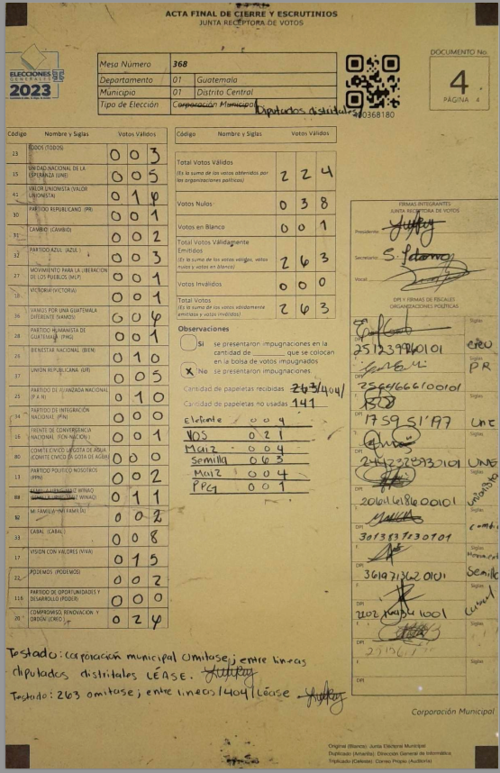 ACTA FINAL DE CIERRE Y ESCRUTINIOS
JUNTA RECEPTORA DE VOTOS
ELECCIONES
GENERALES
2023
Mesa Número 368
Departamento 01 Guatemala
Municipio 01 Distrito Central
Tipo de Elección Corporación Municipal Diputados distritales
DOCUMENTO No.
4
PÁGINA 4
Código Nombre y Siglas Votos Válidos
TODOS (TODOS) 0 0 3
UNIDAD NACIONAL DE LA ESPERANZA (UNE) 0 0 5
VALOR UNIONISTA (VALOR UNIONISTA) 0 1
PARTIDO REPUBLICANO (PR) 0 0 1
CAMBIO (CAMBIO) 0 0 2
PARTIDO AZUL (AZUL) 0 0 3
MOVIMIENTO PARA LA LIBERACIÓN DE LOS PUEBLOS (MLP) 0 0 1
VICTORIA (VICTORIA) 0 0 1
VAMOS POR UNA GUATEMALA DIFERENTE (VAMOS) 0 0
PARTIDO HUMANISTA DE GUATEMALA (PHG) 0 0 1
BIENESTAR NACIONAL (BIEN) 0 1 0
UNION REPUBLICANA (UR) 0 0 5
PARTIDO DE AVANZADA NACIONAL (PAN) 0 1 0
PARTIDO DE INTEGRACIÓN NACIONAL (PIN) 0 0 0
FRENTE DE CONVERGENCIA NACIONAL (FCN NACION) 0 0 1
COMITÉ CÍVICO LA GOTA DE AGUA (COMITÉ CÍVICO LA GOTA DE AGUA) 0 0 0
PARTIDO POLITICO NOSOTROS (PPN) 0 0 2
WINAQ 0 1 1
MI FAMILIA (MI FAMILIA) 0 0 2
CABAL (CABAL) 0 0 8
VISION CON VALORES (VIVA) 0 1 5
PODEMOS (PODEMOS) 0 0 2
PARTIDO DE OPORTUNIDADES Y DESARROLLO (PODER) 0 0 0
COMPROMISO, RENOVACION Y ORDEN (CREO) 0 2 4
Código Nombre y Siglas Votos Válidos
Total Votos Válidos 2 2 4
(Es la suma de los votos obtenidos por las organizaciones políticas)
Votos Nulos 0 3 8
Votos en Blanco 0 0 1
Total Votos Válidamente Emitidos 2 6 3
(Es la suma de los votos válidos, votos nulos y votos en blanco)
Votos Inválidos 0 0 0
Total Votos 2 6 3
(Es la suma de los votos válidamente emitidos y votos inválidos)
Observaciones
Si se presentaron impugnaciones en la cantidad de ____ que se colocan en la bolsa de votos impugnados
X No se presentaron impugnaciones
Cantidad de papeletas recibidas 263/404/
Cantidad de papeletas no usadas 141
Elefante 0 0 4
VOS 0 2 1
Maiz 0 0 4
Semilla 0 6 3
Maiz 0 0 4
PPG 0 0 1
FIRMAS INTEGRANTES
JUNTA RECEPTORA DE VOTOS
Presidente
Secretario
Vocal
DPI Y FIRMAS DE FISCALES
ORGANIZACIONES POLÍTICAS
PR
UNE
UNE
Semilla
Cabal
Testado: corporación municipal omitase; entre lineas
diputados distritales LÉASE.
Testado: 263 omitase; entre lineas/404/Léase
Corporación Municipal
Original (Blanco): Junta Electoral Municipal
Duplicado (Amarillo): Dirección General de Informática
Triplicado (Celeste): Correo Propio (Auditoría)